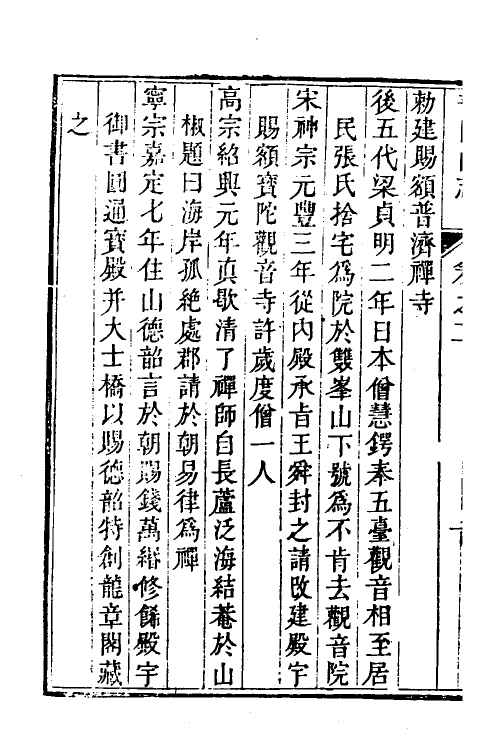 勅建賜額普濟禪寺
後五代梁貞明二年日本僧慧鍔奉五臺觀音相至居
民張氏捨宅爲院於雙峯山下號爲不肯去觀音院
宋神宗元豐三年從內殿承旨王舜封之請改建殿宇
賜額寶陀觀音寺許歲度僧一人
高宗紹興元年眞歇清了禪師自長蘆泛海結菴於山
椒題曰海岸孤絶處郡請於朝易律爲禪
寧宗嘉定七年住山德韶言於朝賜錢萬緡修餙殿宇
御書圓通寶殿并大士橋以賜德韶特創龍章閣藏
之